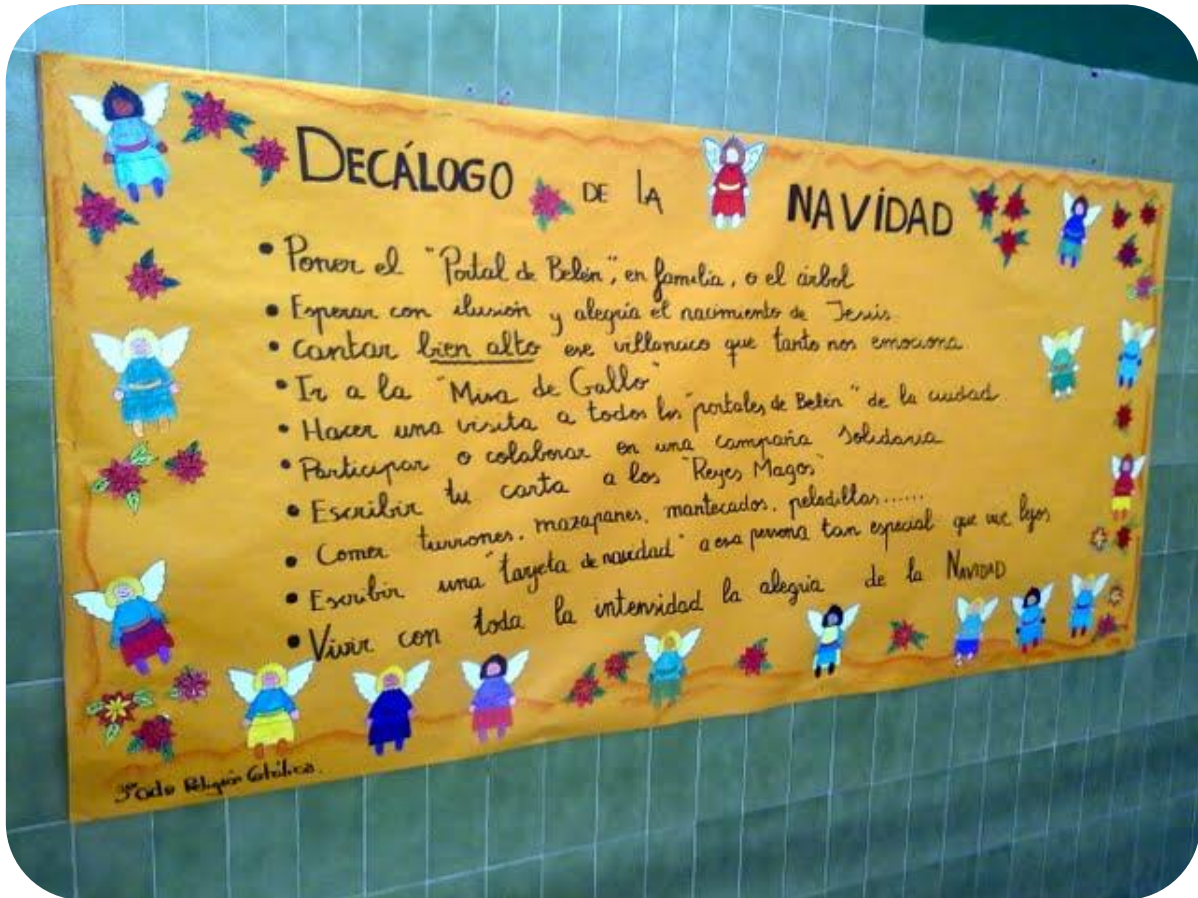 DECÁLOGO DE LA NAVIDAD
• Poner el "Portal de Belén", en familia, o el árbol
• Esperar con ilusión y alegría el nacimiento de Jesús.
• Cantar bien alto ese villancico que tanto nos emociona
• Ir a la "Misa de Gallo"
• Hacer una visita a todos los "portales de Belén" de la ciudad
• Participar o colaborar en una campaña solidaria
• Escribir tu carta a los "Reyes Magos"
• Comer turrones, mazapanes, mantecados, peladillas......
• Escribir una "tarjeta de navidad" a esa persona tan especial que vive lejos
• Vivir con toda la intensidad la alegría de la NAVIDAD
3er Ciclo Religión Católica.